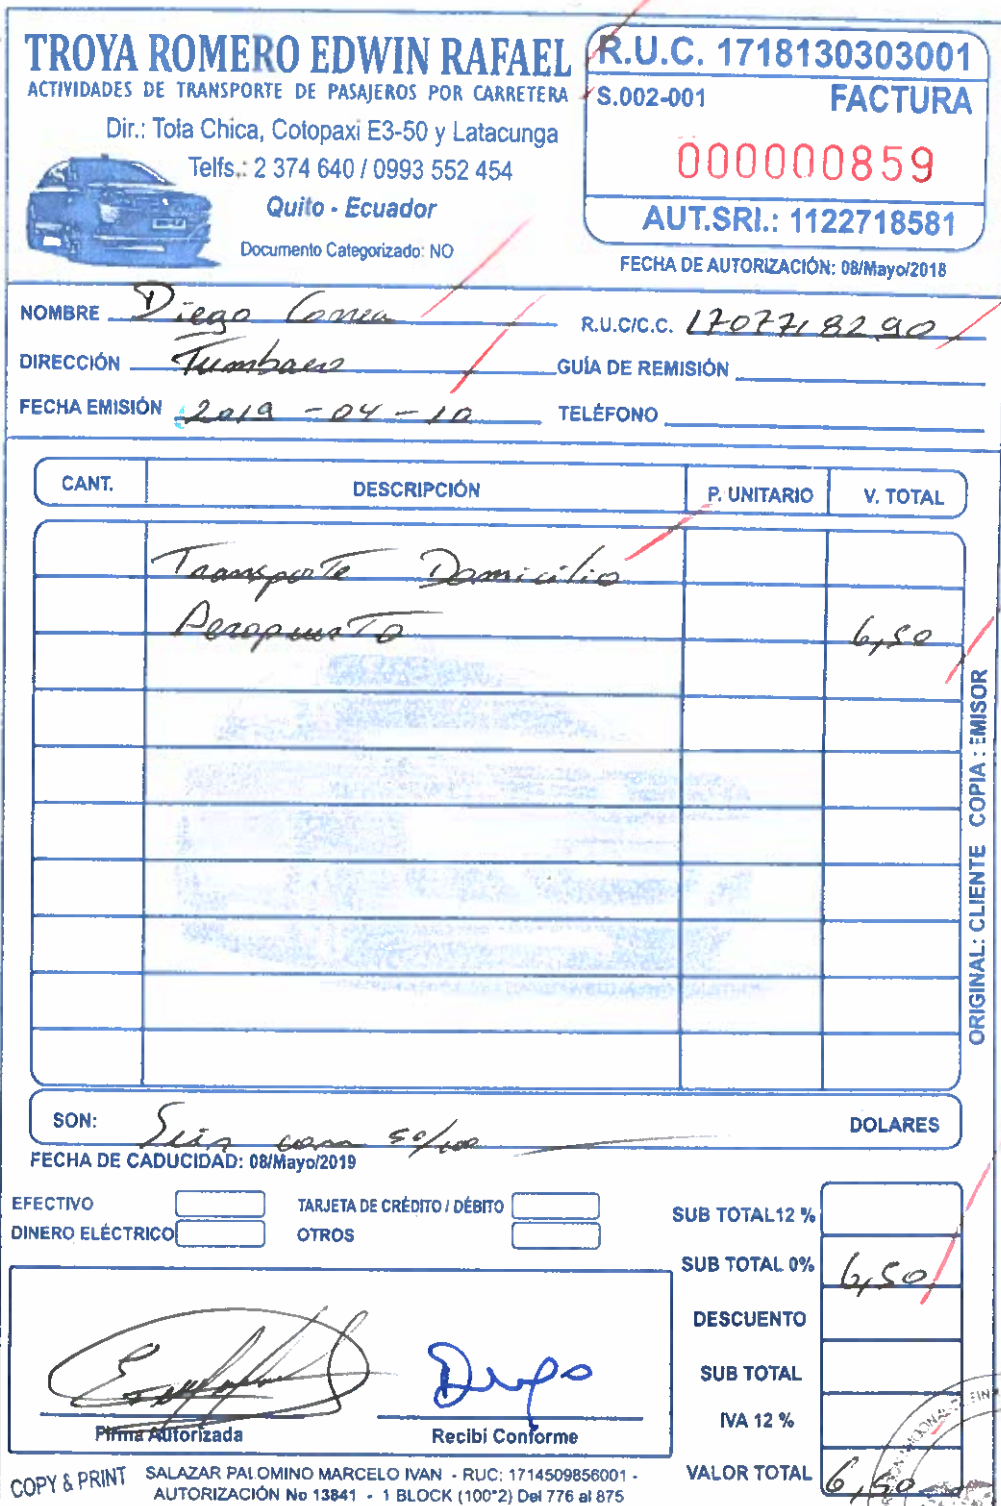 TROYA ROMERO EDWIN RAFAEL
ACTIVIDADES DE TRANSPORTE DE PASAJEROS POR CARRETERA
Dir.: Tola Chica, Cotopaxi E3-50 y Latacunga
Telfs.: 2 374 640 / 0993 552 454
Quito - Ecuador
Documento Categorizado: NO
R.U.C. 1718130303001
S.002-001 FACTURA
000000859
AUT.SRI.: 1122718581
FECHA DE AUTORIZACIÓN: 08/Mayo/2018
NOMBRE Diego Correa R.U.C/C.C. 1707718290
DIRECCIÓN Tumbaco GUÍA DE REMISIÓN
FECHA EMISIÓN 2019-04-10 TELÉFONO
CANT. DESCRIPCIÓN P. UNITARIO V. TOTAL
Transporte Domicilio
Aeropuerto 6,50
ORIGINAL: CLIENTE COPIA: EMISOR
SON: Seis con 50/100 DOLARES
FECHA DE CADUCIDAD: 08/Mayo/2019
EFECTIVO TARJETA DE CRÉDITO / DÉBITO
DINERO ELÉCTRICO OTROS
SUB TOTAL12 %
SUB TOTAL 0% 6,50
DESCUENTO
SUB TOTAL
IVA 12 %
VALOR TOTAL 6,50
Diego
Firma Autorizada Recibí Conforme
COPY & PRINT SALAZAR PALOMINO MARCELO IVAN - RUC: 1714509856001 -
AUTORIZACIÓN No 13841 - 1 BLOCK (100*2) Del 776 al 875